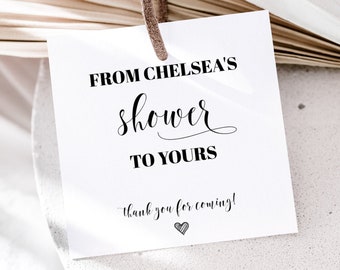 FROM CHELSEA'S
shower
TO YOURS
thank you for coming!